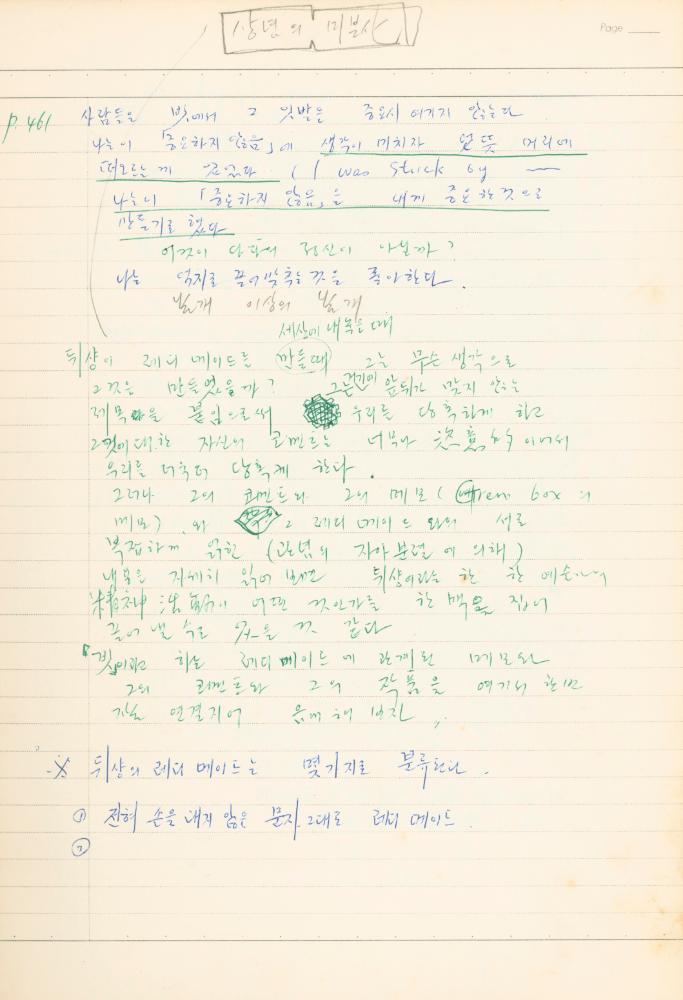 상념의 미분사
Page
p. 461
사람들은 빗에서 그 빗밥은 중요시 여기지 않는다
나는 이 「중요하지 않음」에 생각이 미치자 언뜻 머리에
떠오르는게 있었다 ( I was stuck by
나는 이 「중요하지 않음」을 내게 중요한 것으로
만들기로 했다
이것이 다다의 정신이 아닐까?
나는 억지로 끌어맞추는 것을 좋아한다.
날개 이상의 날개
세상에 내놓은 때
뒤샹이 레디메이드를 만들때 그는 무슨 생각으로
그것은 만들었을까? 그는 거기에 앞뒤가 맞지 않는
제목을 붙임으로써 우리를 당혹하게 하고
그것에 대한 자신의 코멘트는 너무나 恣意的이어서
우리를 더욱더 당혹케 한다.
그러나 그의 코멘트와 그의 메모 ( Green box의
메모) 와 그 레디메이드와의 서로
복잡하게 얽힌 (관념의 자아분렬에 의해)
내용을 자세히 읽어보면 뒤샹이라는 한 예술가의
精神活動이 어떤 것인가를 한 맥을 집어
끌어낼 수도 있을 것 같다
「빗」이라고 하는 레디메이드에 관계된 메모와
그의 코멘트와 그의 작품을 여기서 한번
연결지어 음미해 보자
※ 뒤샹의 레디메이드는 몇가지로 분류된다.
① 전혀 손을 대지 않은 문자 그대로 레디메이드
②